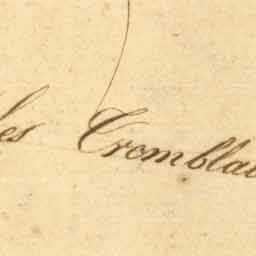 les Cromblai